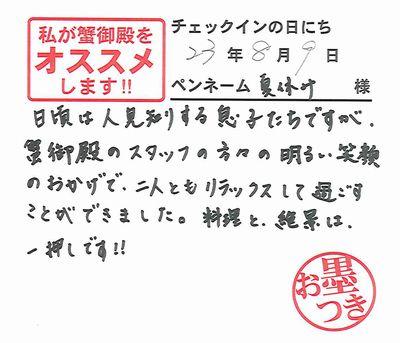 私が蟹御殿を
オススメ
します!!
チェックインの日にち
23年8月9日
ペンネーム 夏休み 様
日頃は人見知りする息子たちですが、
蟹御殿のスタッフの方々の明るい笑顔
のおかげで、二人ともリラックスして過ごす
ことができました。料理と、絶景は、
一押しです!!
お墨つき